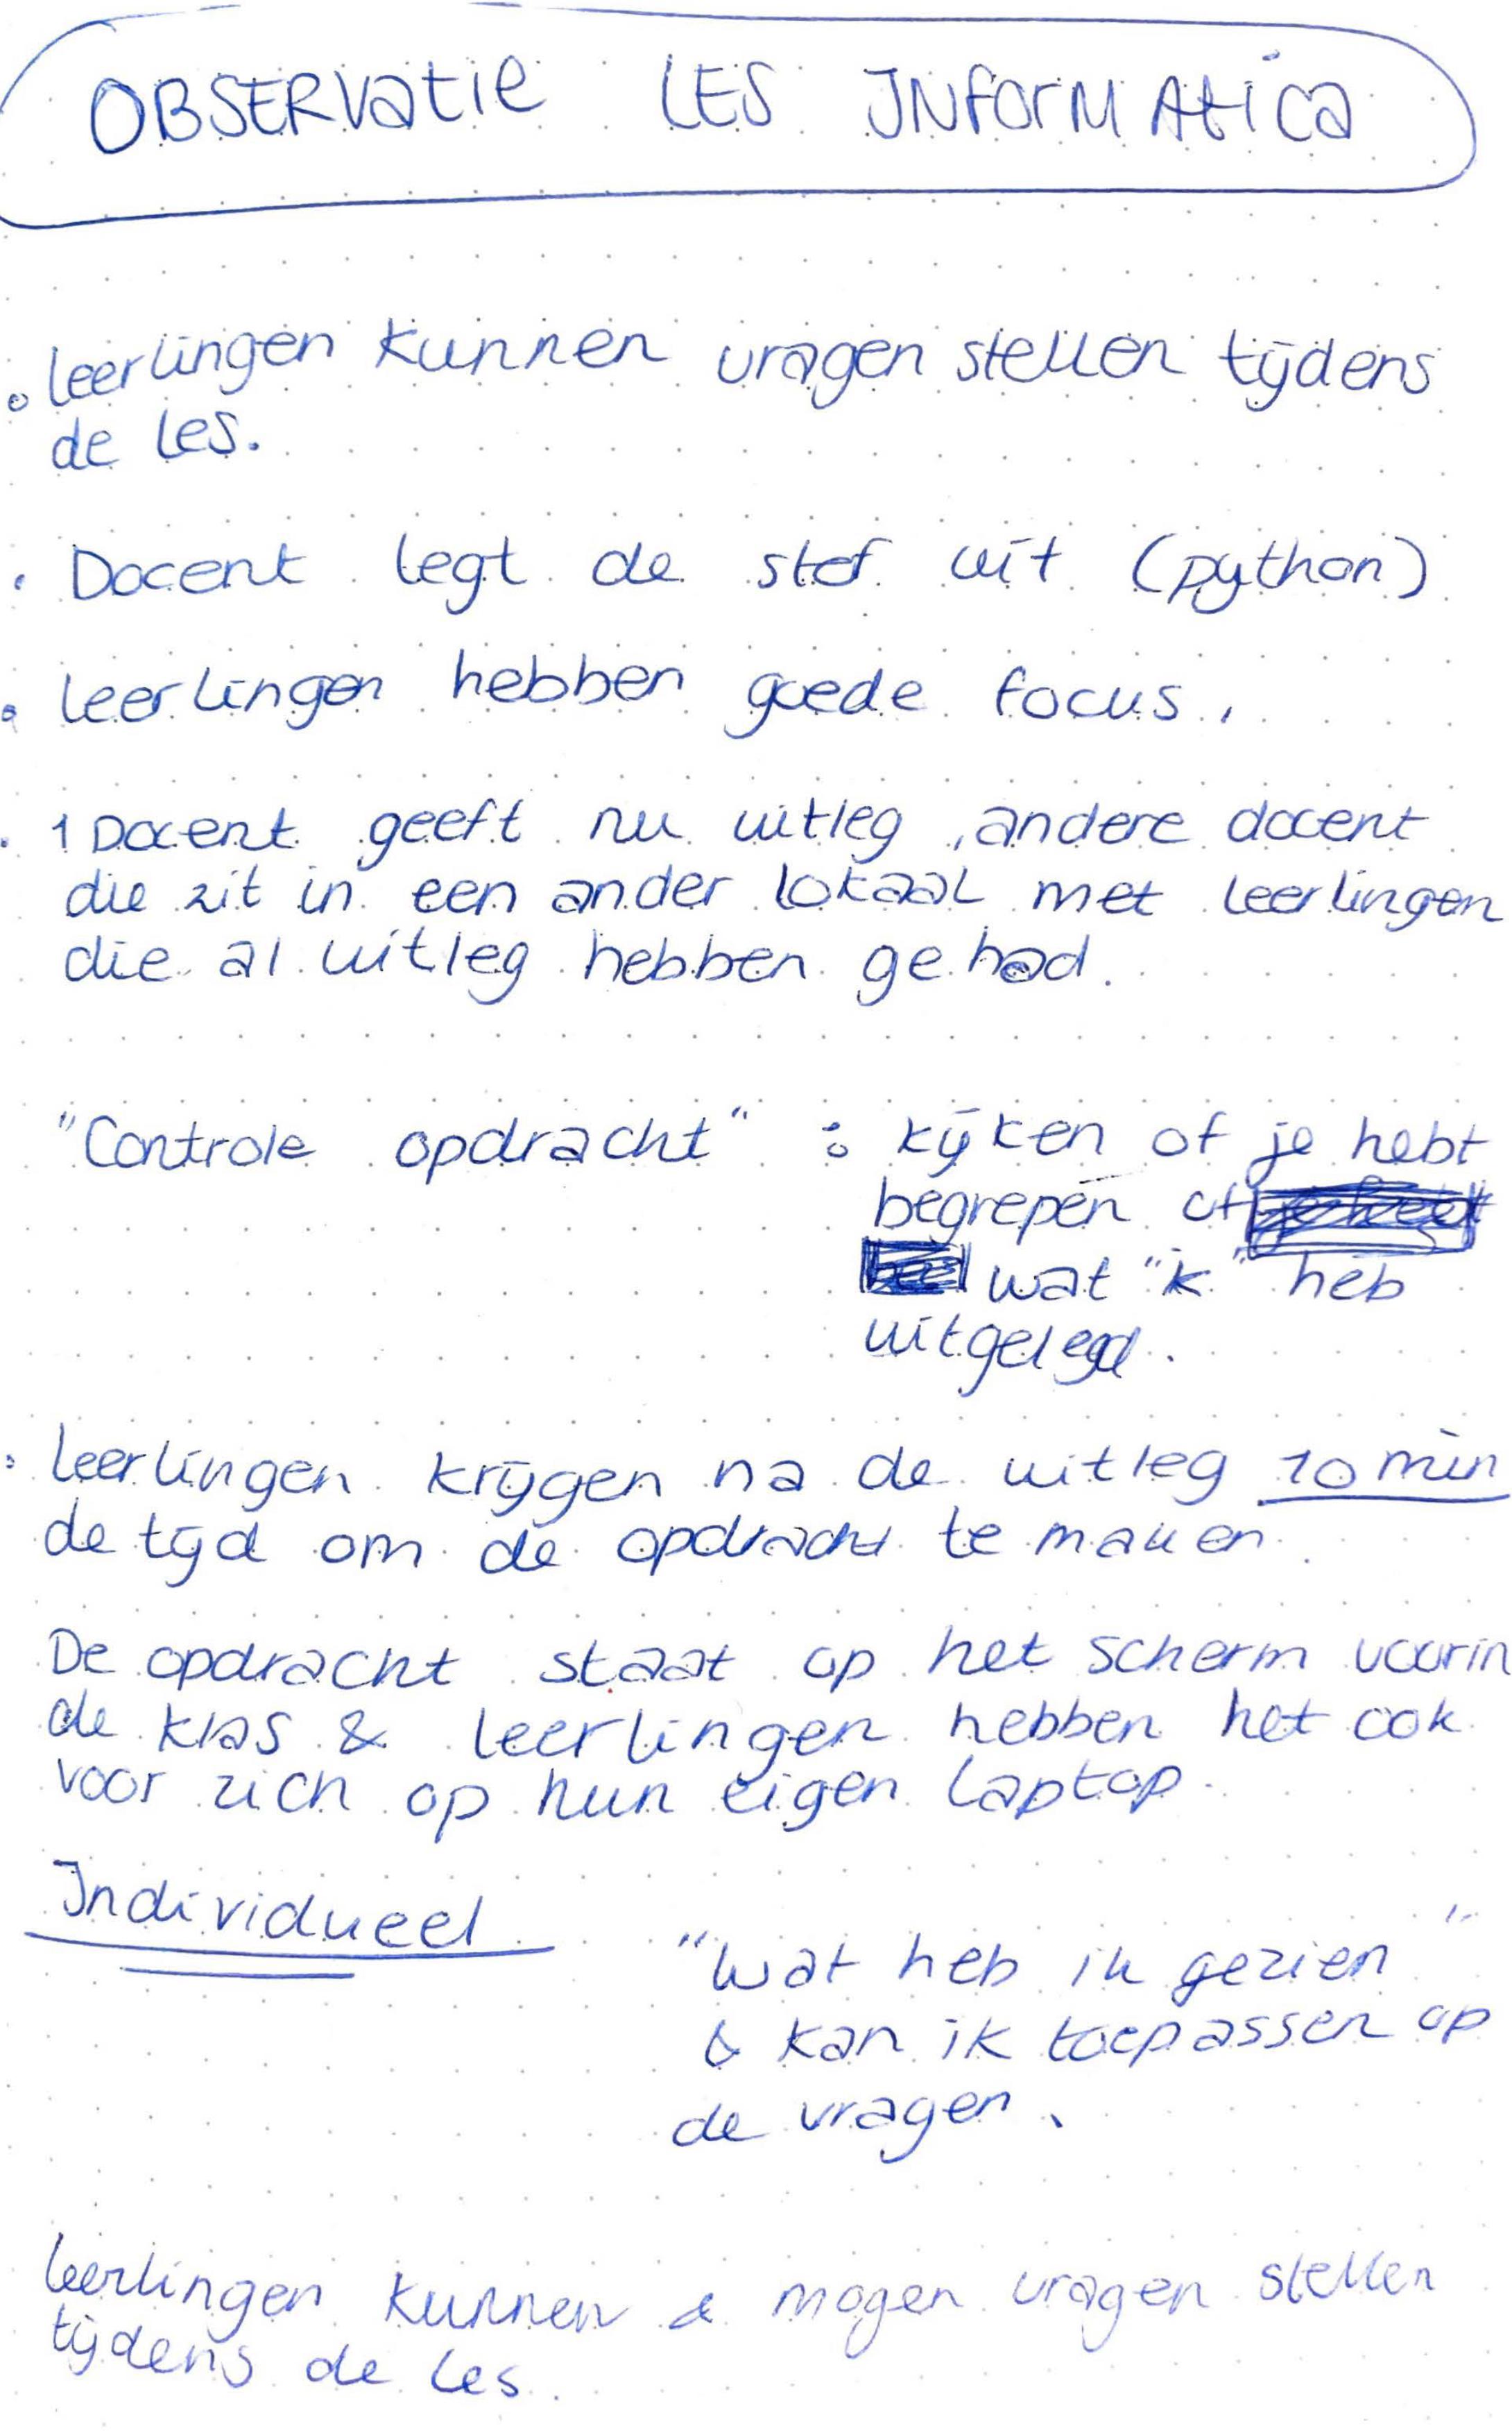 OBSERVatie LES INformAtica
leerlingen kunnen vragen stellen tijdens
de les.
Docent legt de stof uit (python)
leerlingen hebben goede focus.
1 Docent geeft nu uitleg, andere docent
die zit in een ander lokaal met leerlingen
die al uitleg hebben gehad.
"Controle opdracht" : kijken of je hebt
begrepen of
wat "ik" heb
uitgelegd.
leerlingen krijgen na de uitleg 10 min
de tijd om de opdracht te maken.
De opdracht staat op het scherm voorin
de klas & leerlingen hebben het ook
voor zich op hun eigen laptop.
Individueel
"Wat heb ik gezien"
& kan ik toepassen op
de vragen.
leerlingen kunnen & mogen vragen stellen
tijdens de les.